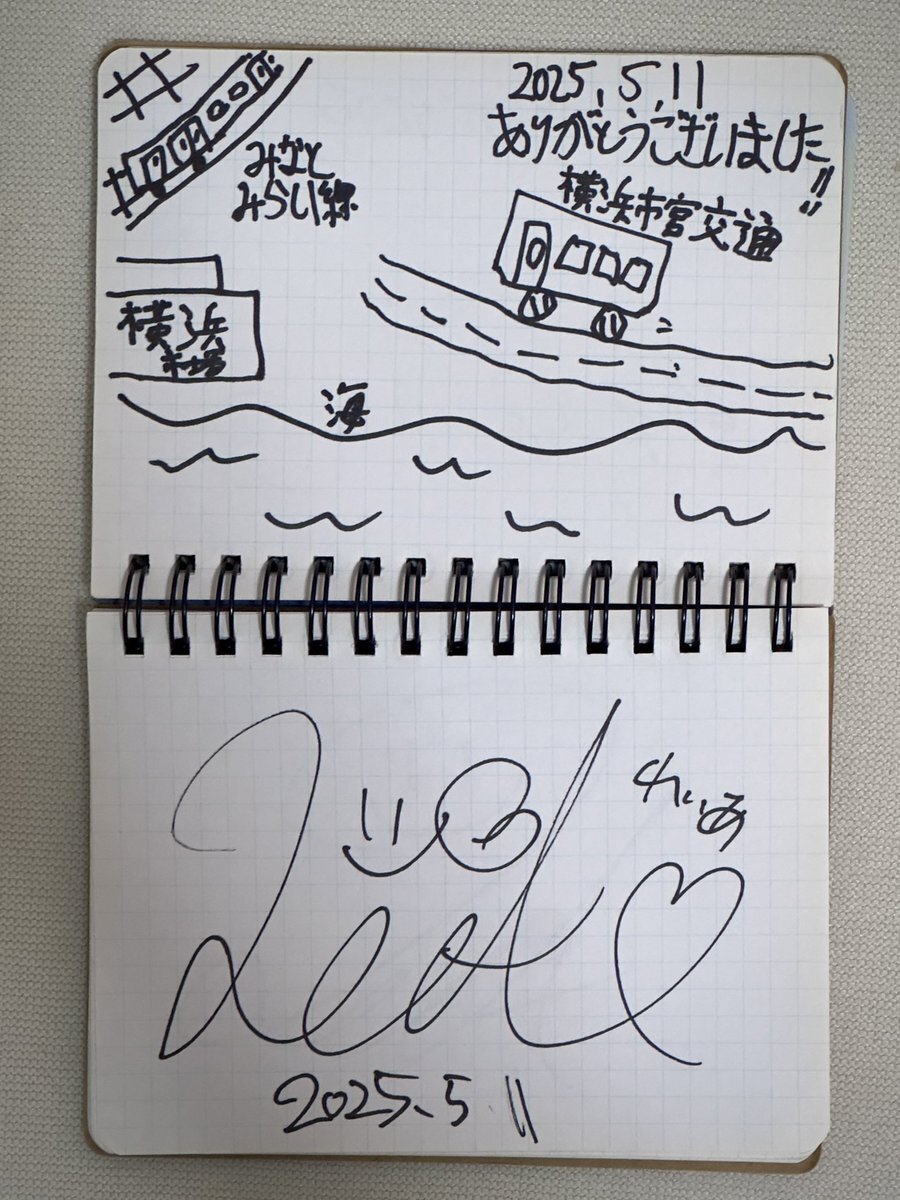 2025.5.11
ありがとうございました!!
横浜市営交通
みなと
みらい線
横浜
市場
海
れいあ
2025.5 11